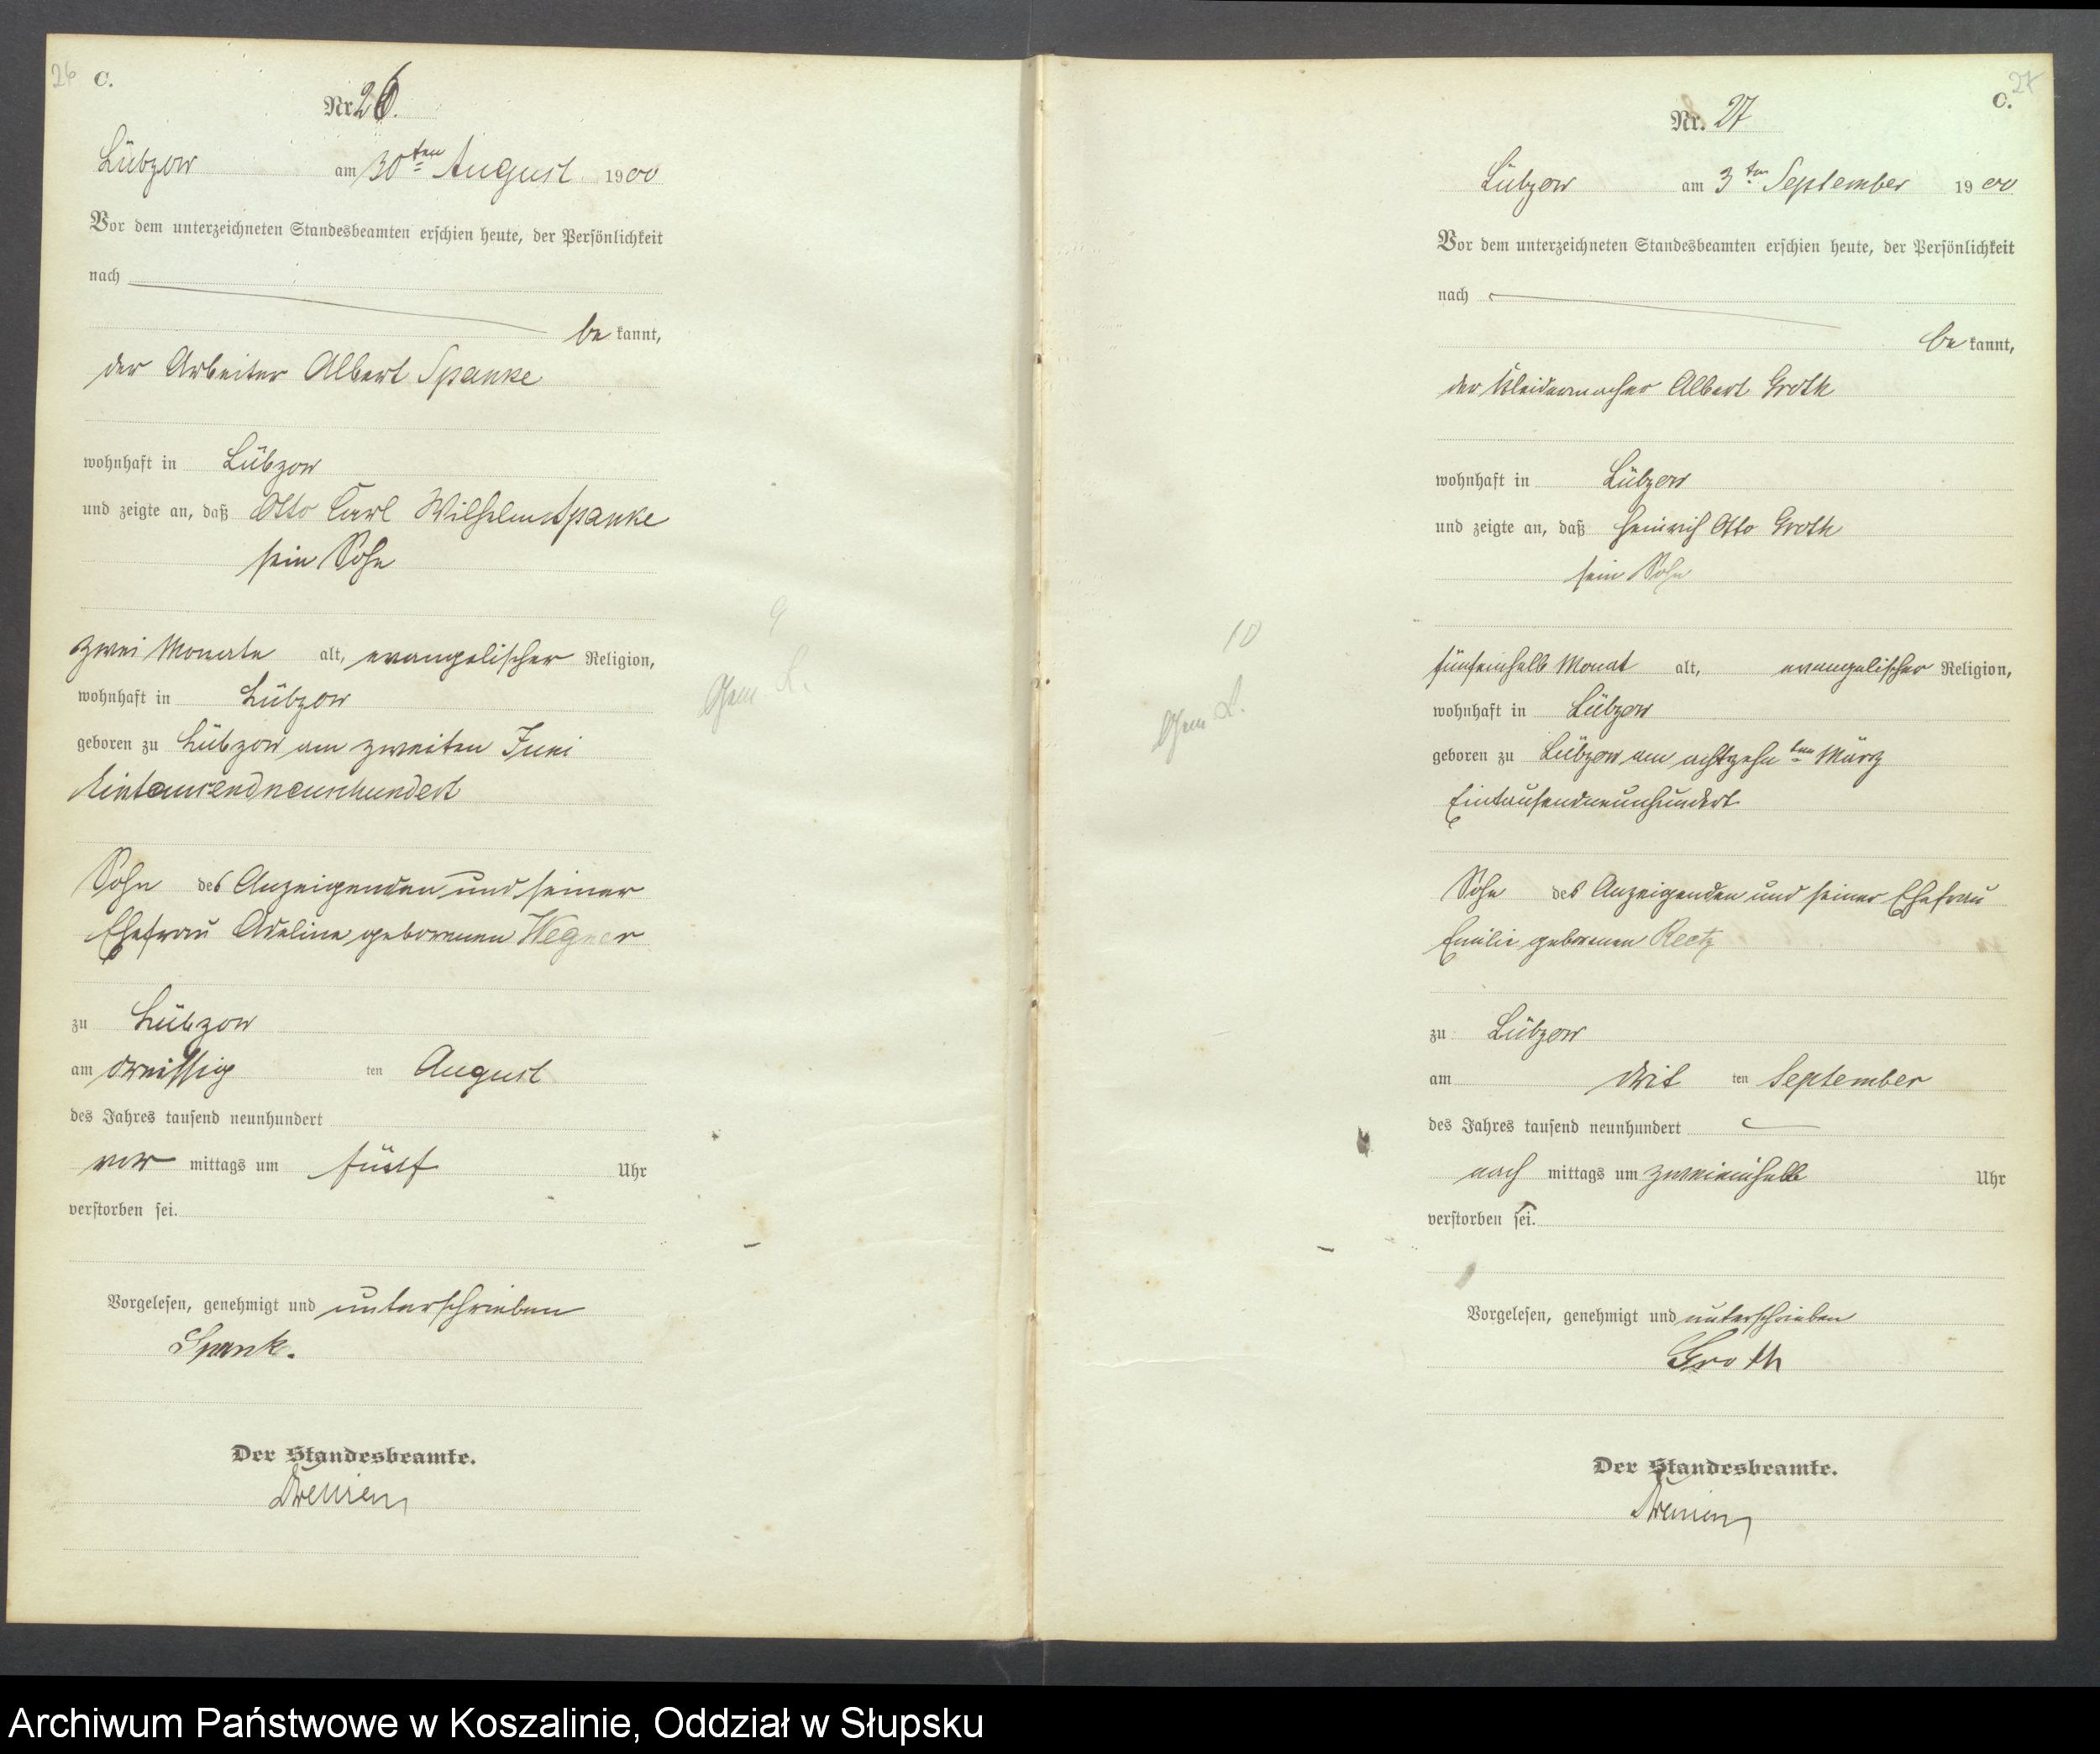 26
C.
Nr. 26.
Lübzow am 30ten August 1900
Vor dem unterzeichneten Standesbeamten erschien heute, der Persönlichkeit
nach
be kannt,
der Arbeiter Albert Spanke
wohnhaft in Lübzow
und zeigte an, daß Otto Carl Wilhelm Spanke
sein Sohn
zwei Monate alt, evangelischer Religion,
wohnhaft in Lübzow
geboren zu Lübzow am zweiten Juni
Eintausendneunhundert
Sohn des Anzeigenden und seiner
Ehefrau Adeline geborenen Wegner
zu Lübzow
am dreissig ten August
des Jahres tausend neunhundert
vor mittags um fünf Uhr
verstorben sei.
Vorgelesen, genehmigt und unterschrieben
Spank.
Der Standesbeamte.
9
27
C.
Nr. 27
Lübzow am 3ten September 1900
Vor dem unterzeichneten Standesbeamten erschien heute, der Persönlichkeit
nach
be kannt,
der Kleidermacher Albert Groth
wohnhaft in Lübzow
und zeigte an, daß Heinrich Otto Groth
sein Sohn
fünfeinhalb Monat alt, evangelischer Religion,
wohnhaft in Lübzow
geboren zu Lübzow am achtzehnten März
Eintausendneunhundert
Sohn des Anzeigenden und seiner Ehefrau
Emilie geborenen Reetz
zu Lübzow
am drit ten September
des Jahres tausend neunhundert
nach mittags um zweieinhalb Uhr
verstorben sei.
Vorgelesen, genehmigt und unterschrieben
Groth
Der Standesbeamte.
10
Archiwum Państwowe w Koszalinie, Oddział w Słupsku